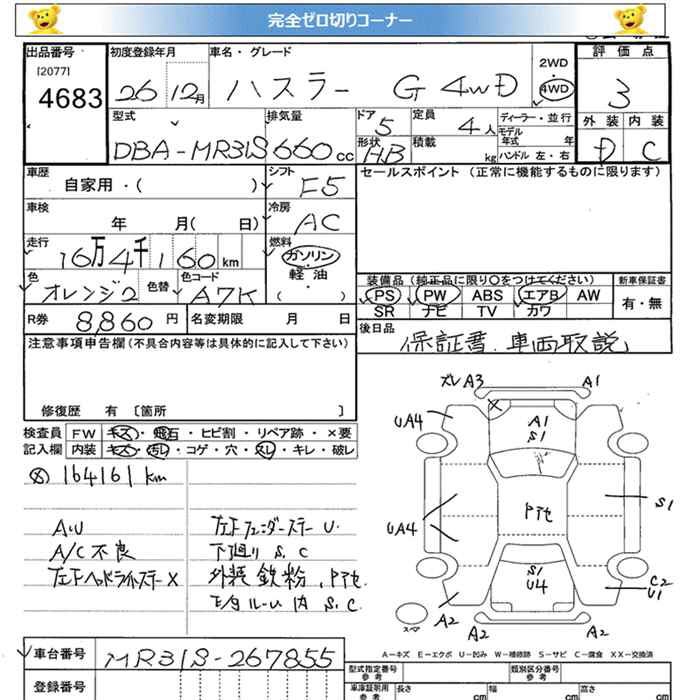 完全ゼロ切りコーナー
出品番号 初度登録年月 車名・グレード 評価点
[2077]
4683 26 12月 ハスラー G 4WD 2WD 4WD 3
外装 内装
D C
型式 排気量 ドア 5 定員 4人 ディーラー・並行
モデル年式 年
DBA-MR31S 660cc 形状 HB 積載 kg ハンドル 左・右
車歴 シフト セールスポイント (正常に機能するものに限ります)
自家用・( ) F5
車検 冷房
年 月( 日) AC
走行 燃料
16万4千160km ガソリン・軽油・( )
色 色替 色コード 装備品 (純正品に限り○をつけてください) 新車保証書
オレンジ2 A7K PS PW ABS エアB AW 有・無
SR ナビ TV カワ
R券 8,860円 名変期限 月 日 後日品
保証書、車両取説
注意事項申告欄(不具合内容等は具体的に記入して下さい)
修復歴 有 [箇所 ]
検査員 FW キズ・飛石・ヒビ割・リペア跡・×要
記入欄 内装 キズ・汚レ・コゲ・穴・スレ・キレ・破レ
164161km
AU 左下フェンダーステー U.
A/C不良 下廻り S.C
左下ヘッドライトステーX 外装 鉄粉、Pアセ
ルーム内 S.C.
ズレ A3 A1
UA4 A1
S1
UA4 Pアセ S1
S1
U4 C2
U1
A2 A2 A2 A2
スペア
A-キズ E-エクボ U-凹み W-補修跡 S-サビ C-腐食 XX-交換済
車台番号 MR31S-267855
登録番号
型式指定番号 参考 類別区分番号 参考
車庫証明用 参考 長さ cm 幅 cm 高さ cm